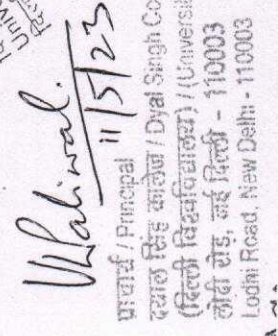 VKPaliwal.
11/5/23
प्राचार्य / Principal
दयाल सिंह कालेज / Dyal Singh Co
(दिल्ली विश्वविद्यालय) / (Universi
लोदी रोड, नई दिल्ली - 110003
Lodhi Road, New Delhi - 110003